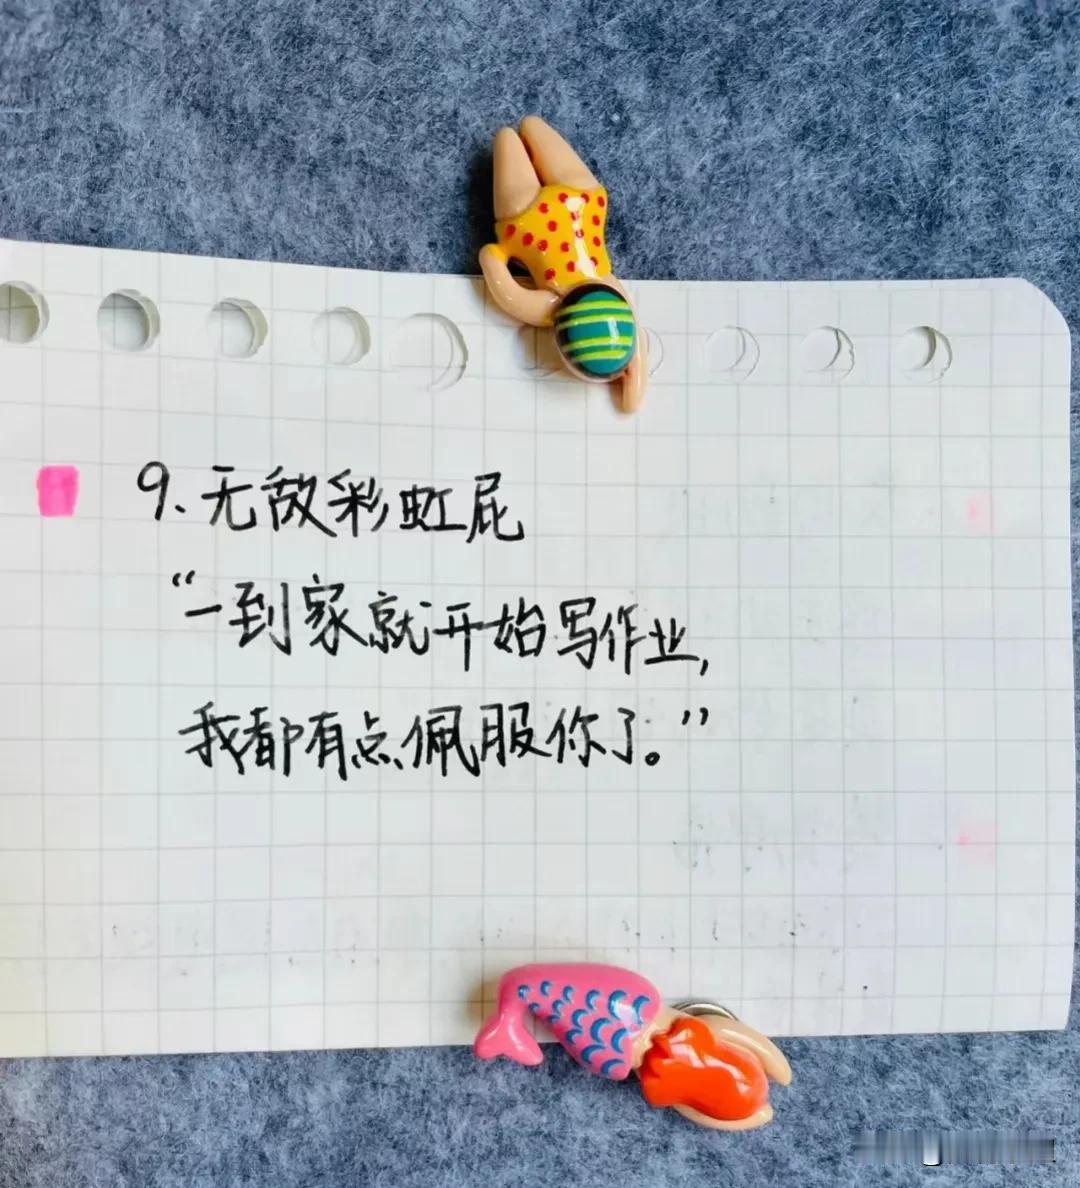 9.无敌彩虹屁
“一到家就开始写作业,
我都有点佩服你了。”